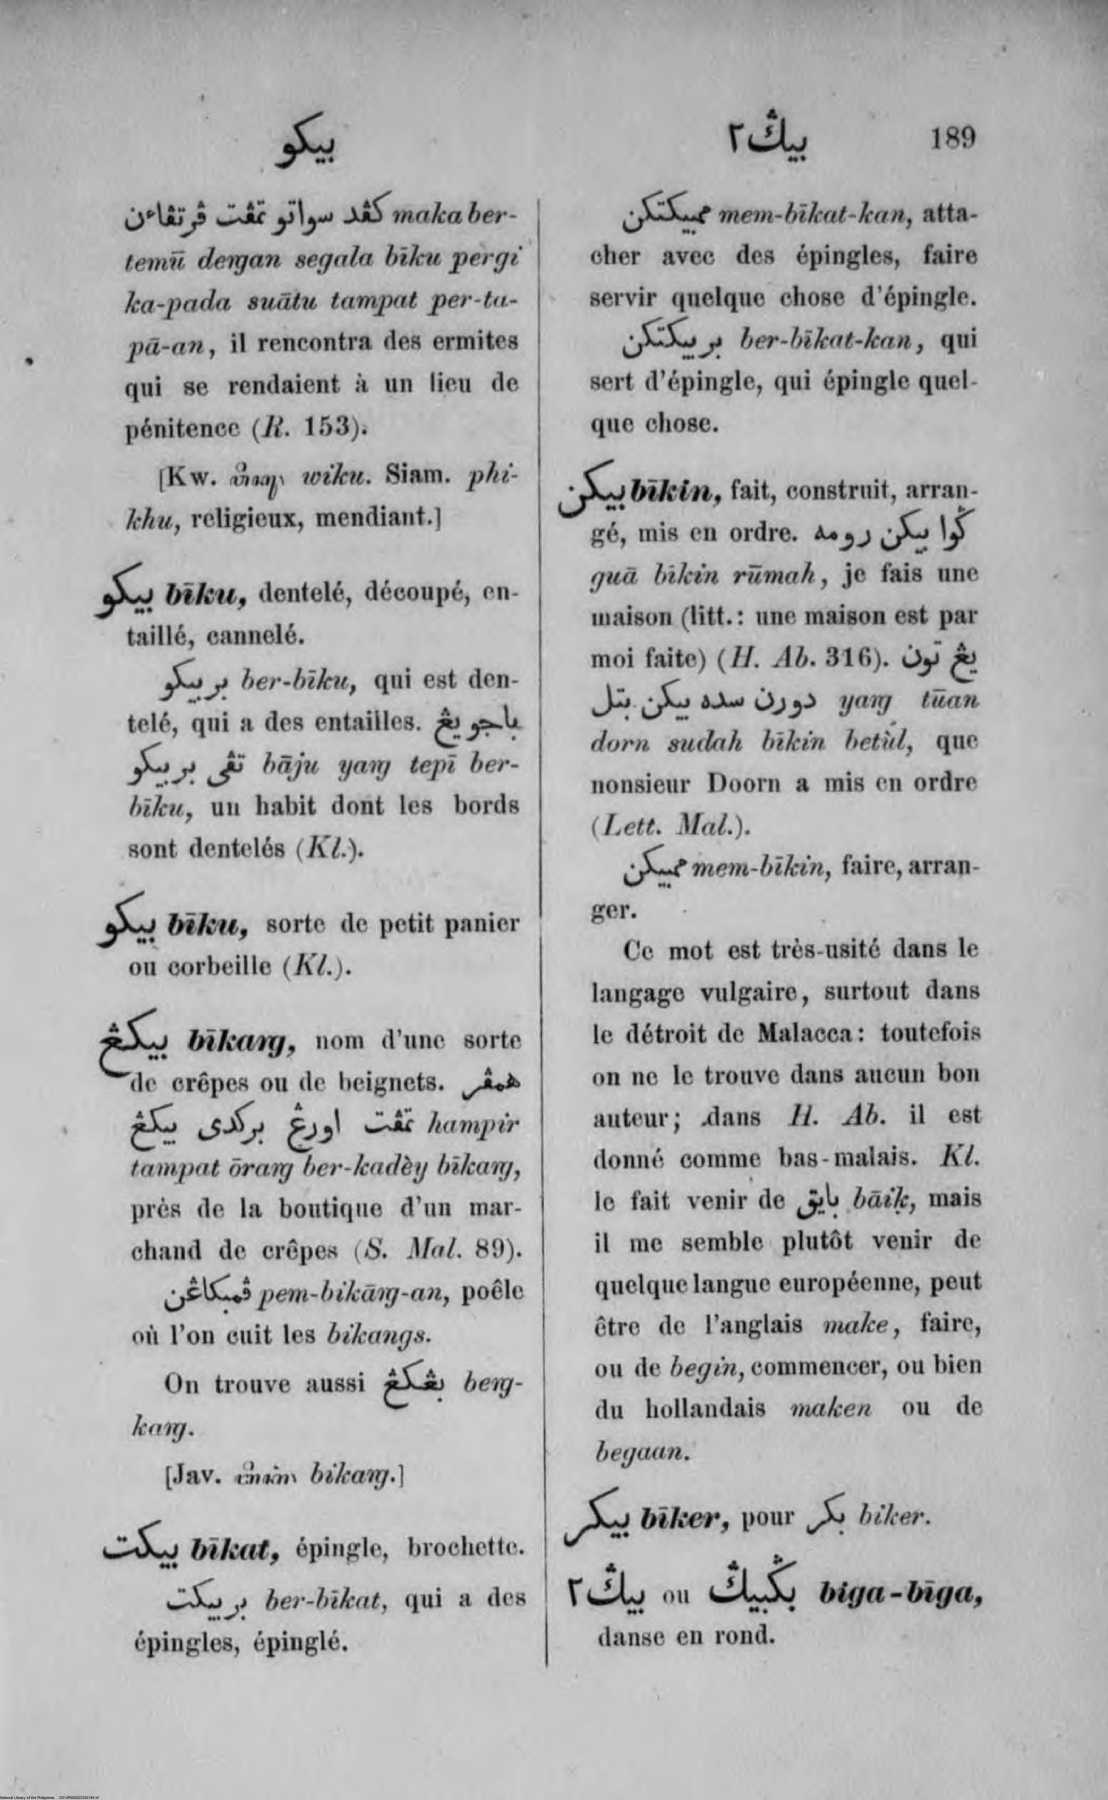 بيكو
بيݢ٢
189
كڤد سواتو تمڤت ڤرتڤاءن maka ber-
temū dengan segala bīku pergi
ka-pada suātu tampat per-ta-
pā-an, il rencontra des ermites
qui se rendaient à un lieu de
pénitence (R. 153).
[Kw. wiku. Siam. phi-
khu, religieux, mendiant.]
بيكو bīku, dentelé, découpé, en-
taillé, cannelé.
بربيكو ber-bīku, qui est den-
telé, qui a des entailles. باجو يڠ
تڤى بربيكو bāju yang tepī ber-
bīku, un habit dont les bords
sont dentelés (Kl.).
بيكو bīku, sorte de petit panier
ou corbeille (Kl.).
بيكڠ bīkang, nom d'une sorte
de crêpes ou de beignets. همڤر
تمڤت اورڠ بركدى بيكڠ hampir
tampat ōrang ber-kadèy bīkang,
près de la boutique d'un mar-
chand de crêpes (S. Mal. 89).
ڤمبكاڠن pem-bikāng-an, poêle
où l'on cuit les bikangs.
On trouve aussi بڠكڠ beng-
kang.
[Jav. bikang.]
بيكت bīkat, épingle, brochette.
بربيكت ber-bīkat, qui a des
épingles, épinglé.
ممبيكتكن mem-bīkat-kan, atta-
cher avec des épingles, faire
servir quelque chose d'épingle.
بربيكتكن ber-bīkat-kan, qui
sert d'épingle, qui épingle quel-
que chose.
بيكن bīkin, fait, construit, arran-
gé, mis en ordre. ݢوا بيكن رومه
guā bīkin rūmah, je fais une
maison (litt.: une maison est par
moi faite) (H. Ab. 316). يڠ تون
دورن سده بيكن بتل yang tūan
dorn sudah bīkin betùl, que
nonsieur Doorn a mis en ordre
(Lett. Mal.).
ممبيكن mem-bīkin, faire, arran-
ger.
Ce mot est très-usité dans le
langage vulgaire, surtout dans
le détroit de Malacca: toutefois
on ne le trouve dans aucun bon
auteur; dans H. Ab. il est
donné comme bas-malais. Kl.
le fait venir de بايق bāiḳ, mais
il me semble plutôt venir de
quelque langue européenne, peut
être de l'anglais make, faire,
ou de begin, commencer, ou bien
du hollandais maken ou de
begaan.
بيكر bīker, pour بكر biker.
بيݢ٢ ou بݢبيݢ biga-bīga,
danse en rond.